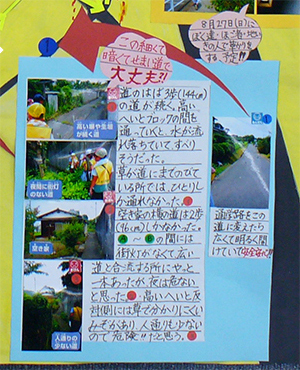 8月27日(日)に
ぼく達・ほご者・地い
きの人で草かりを
する予定!!
この細くて
暗くてせまい道で
大丈夫?!
道のはば3歩(144cm)
の道が続く。高い
へいとブロックの間と
通っていくと、水が流
れ落ちていて、すべり
そうだった。
草が道にまでのびて
いる所では、ひとりし
か通れなかった。
空き家の横の道は2歩
(96cm)しかなかった。
A~Bの間には
街灯がなくて広い
道と合流する所にやっと
一本あったが、夜は危ない
と思った。高いへいと反
対側には草で分かりにくい
みぞがあり、人通りも少ない
ので危険!!だと思う。
高い塀や生垣
が続く道
夜間に街灯
のない道
空き家
人通りの
少ない道
通学路をこの
道に変えたら
広くて明るく開
けていて安全安心!!!